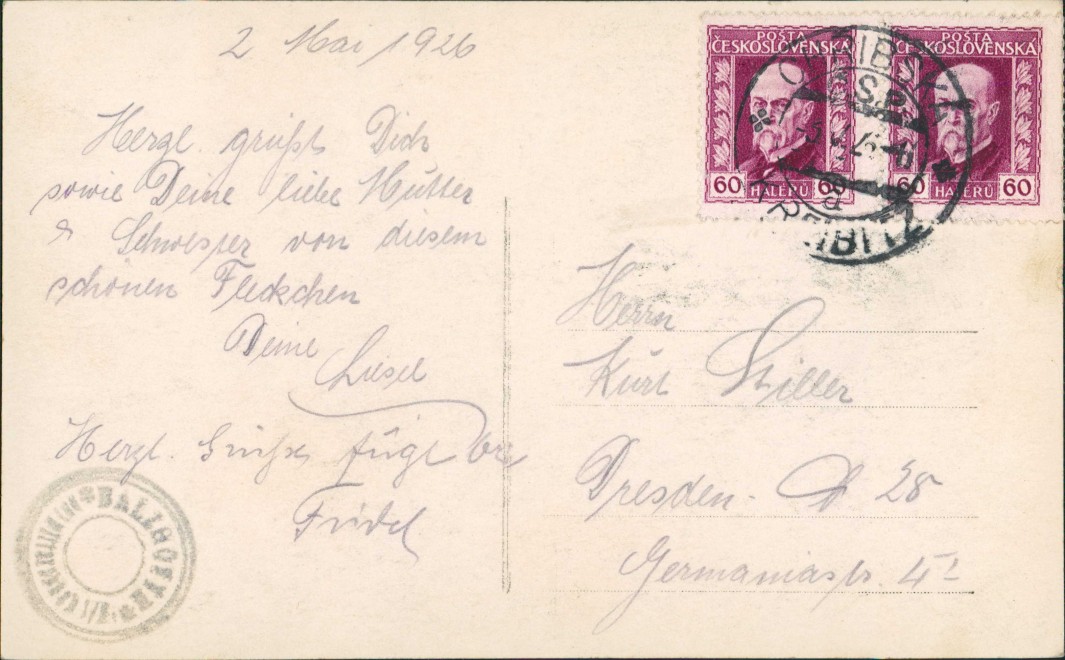 2 Mai 1926
Herzl. grüßt Dich
sowie Deine liebe Mutter
& Schwester von diesem
schönen Fleckchen
Deine
Liesel
Herzl. Grüße fügt bei
Fridel
POŠTA
ČESKOSLOVENSKÁ
60 HALÉŘŮ 60
POŠTA
ČESKOSLOVENSKÁ
60 HALÉŘŮ 60
Č.S.P.
Herrn
Kurt Stiller
Dresden - A 28
Germaniastr. 4